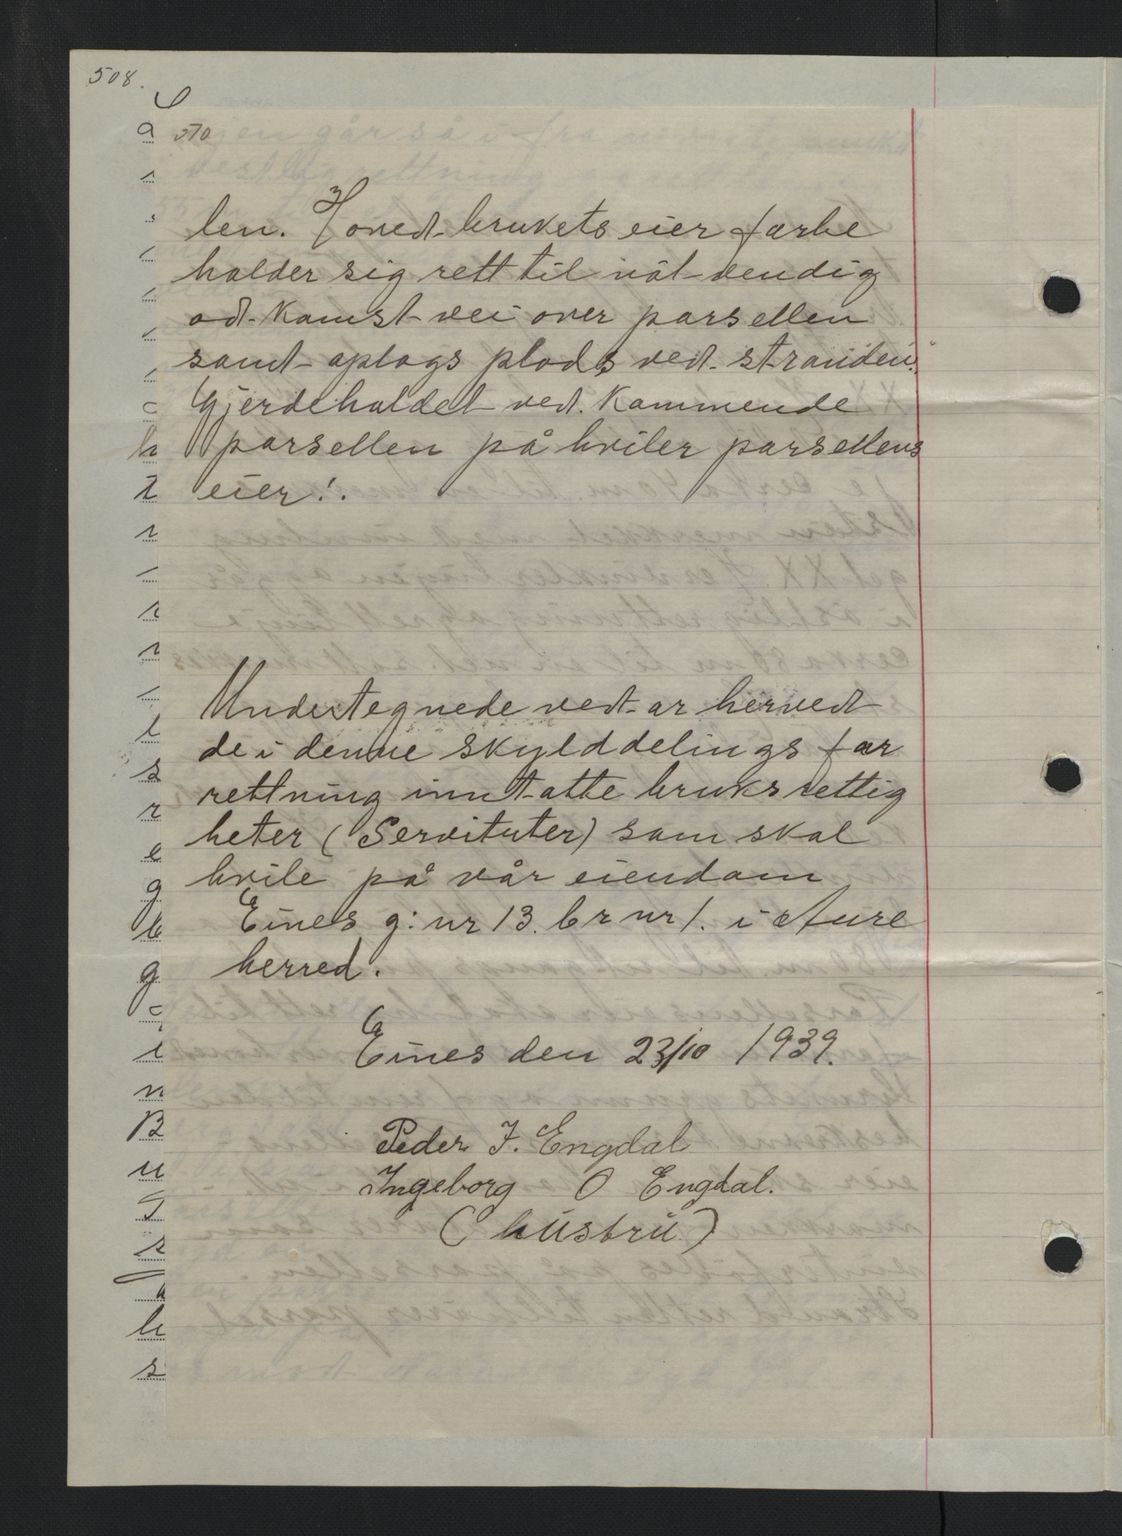 508.
570
len. Hoved-brukets eier forbe
holder sig rett til nöt-vendig
ad-komst-vei over parsellen
samt-oplags plads ved-stranden."
Gjerdeholdet ved. Kommende
parsellen på hviler parsellens
eier!.
Undertegnede ved-ar herved
de i denne skylddelings for
rettning inntatte bruksrettig
heter (Servituter) som skal
hvile på vår eiendom
Eines g: nr 13. br nr 1. i Aure
herred.
Eines den 23/10 1939.
Peder J. Engdal
Ingeborg O Engdal.
(hustru)